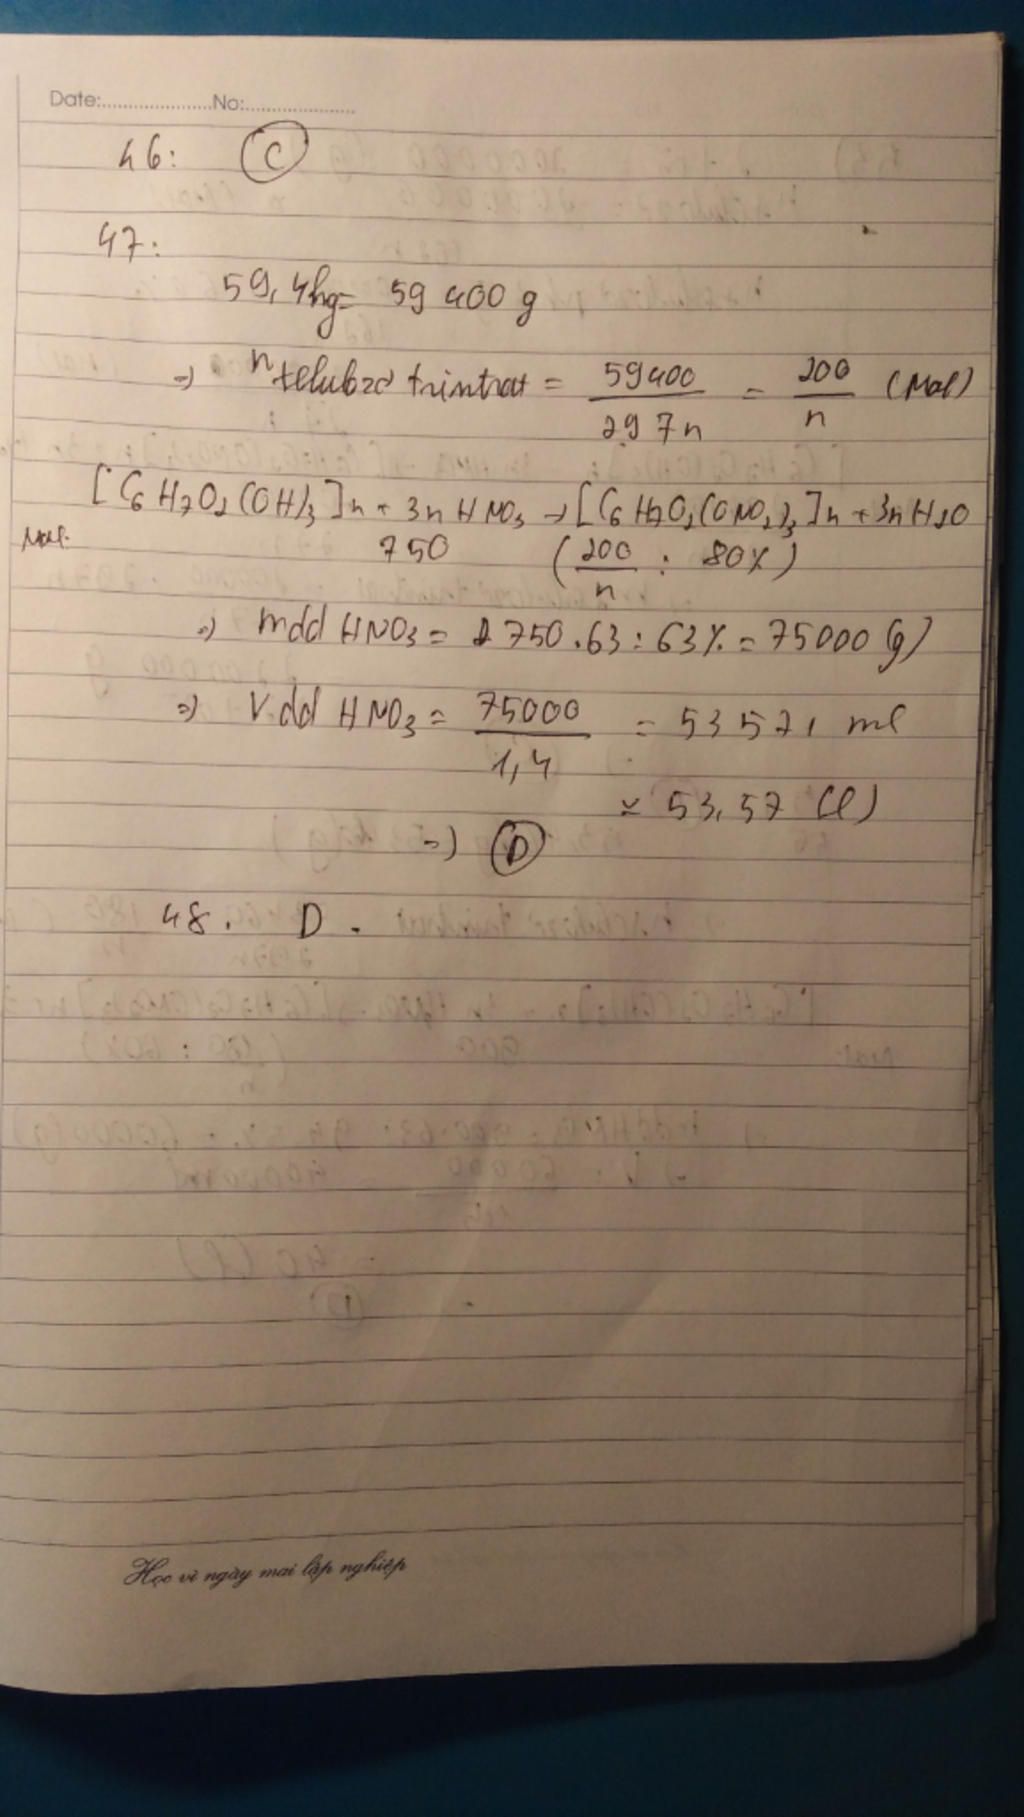 Date:.....................No:.....................
46: C
47:
59,4kg = 59 400 g
=) n xelulozơ trinitrat = 59400 / 297n = 200 / n (mol)
[C6H7O2(OH)3]n + 3nHNO3 → [C6H7O2(ONO2)3]n + 3nH2O
mol: 750 (200/n : 80%)
=) mdd HNO3 = 750.63 : 63% = 75000 (g)
=) Vdd HNO3 = 75000 / 1,4 = 53571 ml
≈ 53,57 (l)
=) D
48. D.
Học vì ngày mai lập nghiệp